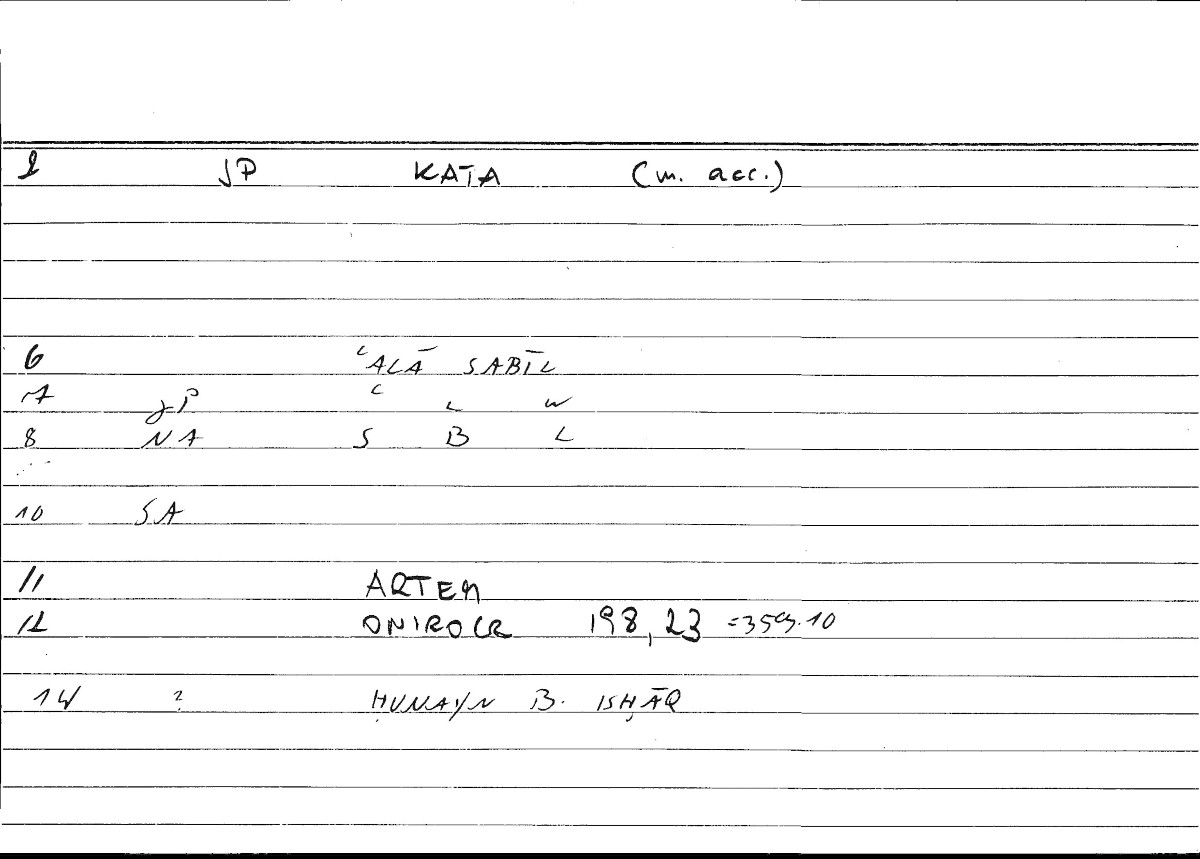 2 JP KATA (m. acc.)
6 ʿALĀ SABĪL
7 JP ʿ L W
8 NA S B L
10 SA
11 ARTEM
12 ONIROCR 198,23 =359.10
14 ? ḤUNAYN B. ISḤĀQ